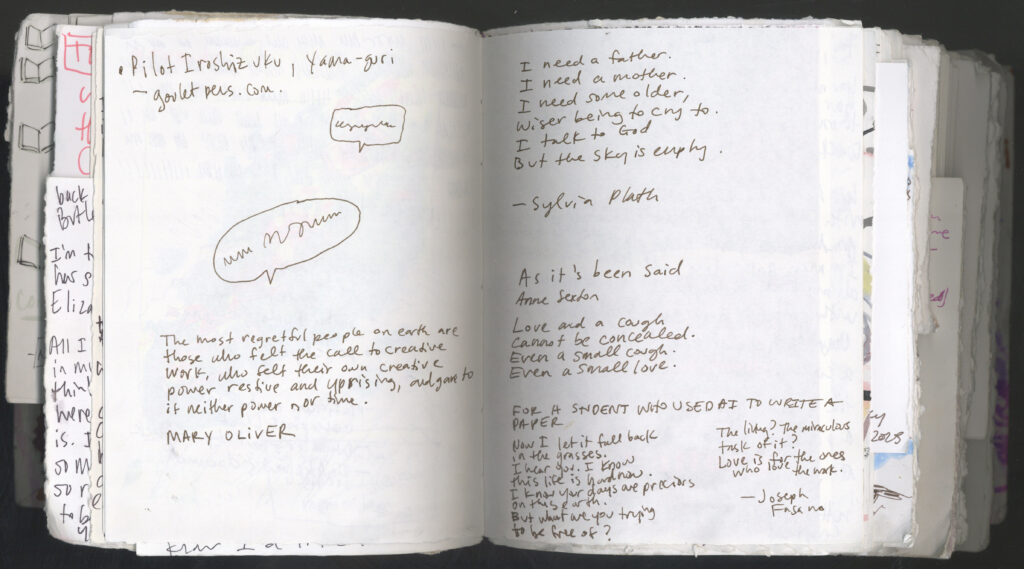 • Pilot Iroshizuku, Yama-guri
— goulet pens.com.
The most regretful people on earth are
those who felt the call to creative
work, who felt their own creative
power restive and uprising, and gave to
it neither power nor time.
MARY OLIVER
I need a father.
I need a mother.
I need some older,
wiser being to cry to.
I talk to God
But the sky is empty.
— Sylvia Plath
As it's been said
Anne Sexton
Love and a cough
Cannot be concealed.
Even a small cough.
Even a small love.
FOR A STUDENT WHO USED AI TO WRITE A
PAPER
Now I let it fall back
in the grasses.
I hear you. I know
this life is hard now.
I know your days are precious
on this earth.
But what are you trying
to be free of?
The living? The miraculous
task of it?
Love is for the ones
who love the work.
— Joseph
Fasano
back
I'm
has
All I
in my
here
is. I